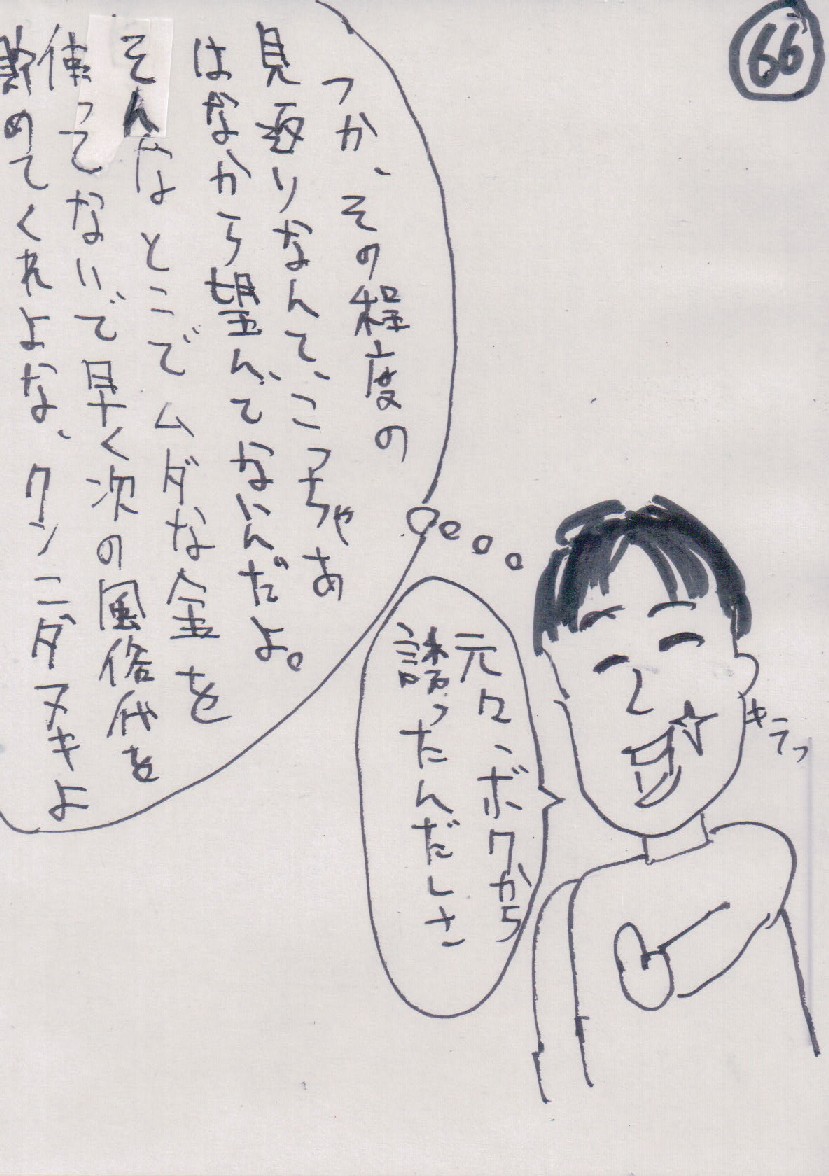 66
つか、その程度の
見返りなんて、こっちゃあ
はなから望んでないんだよ。
そんなとこでムダな金を
使ってないで早く次の風俗代を
貯めてくれよな、クンニダヌキよ
元々、ボクから
誘ったんだしさ
キラッ